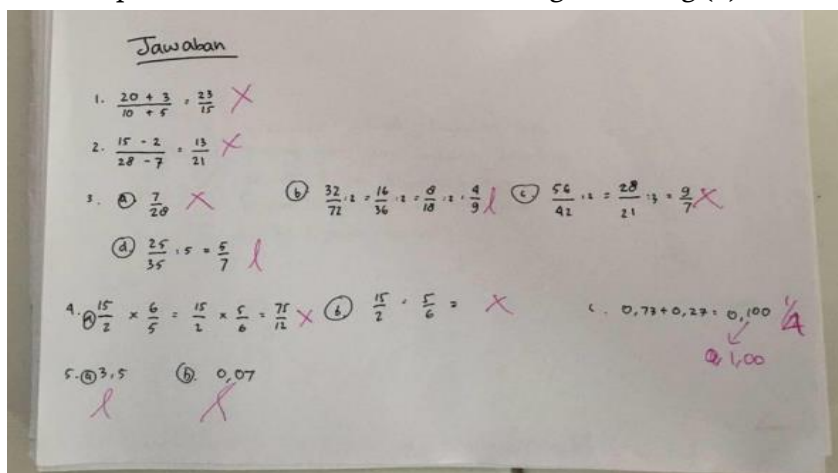 Jawaban
1. 20 + 3 / 10 + 5 = 23/15 X
2. 15 - 2 / 28 - 7 = 13/21 X
3. (a) 7/28 X (b) 32/72 : 2 = 16/36 : 2 = 8/18 : 2 = 4/9 (c) 56/42 : 2 = 28/21 : 3 = 9/7 X
(d) 25/35 : 5 = 5/7
4. (a) 15/2 × 6/5 = 15/2 × 5/6 = 75/12 X (b) 15/2 - 5/6 = X c. 0,73 + 0,27 = 0,100
1,00
5. (a) 3,5 (b). 0,07